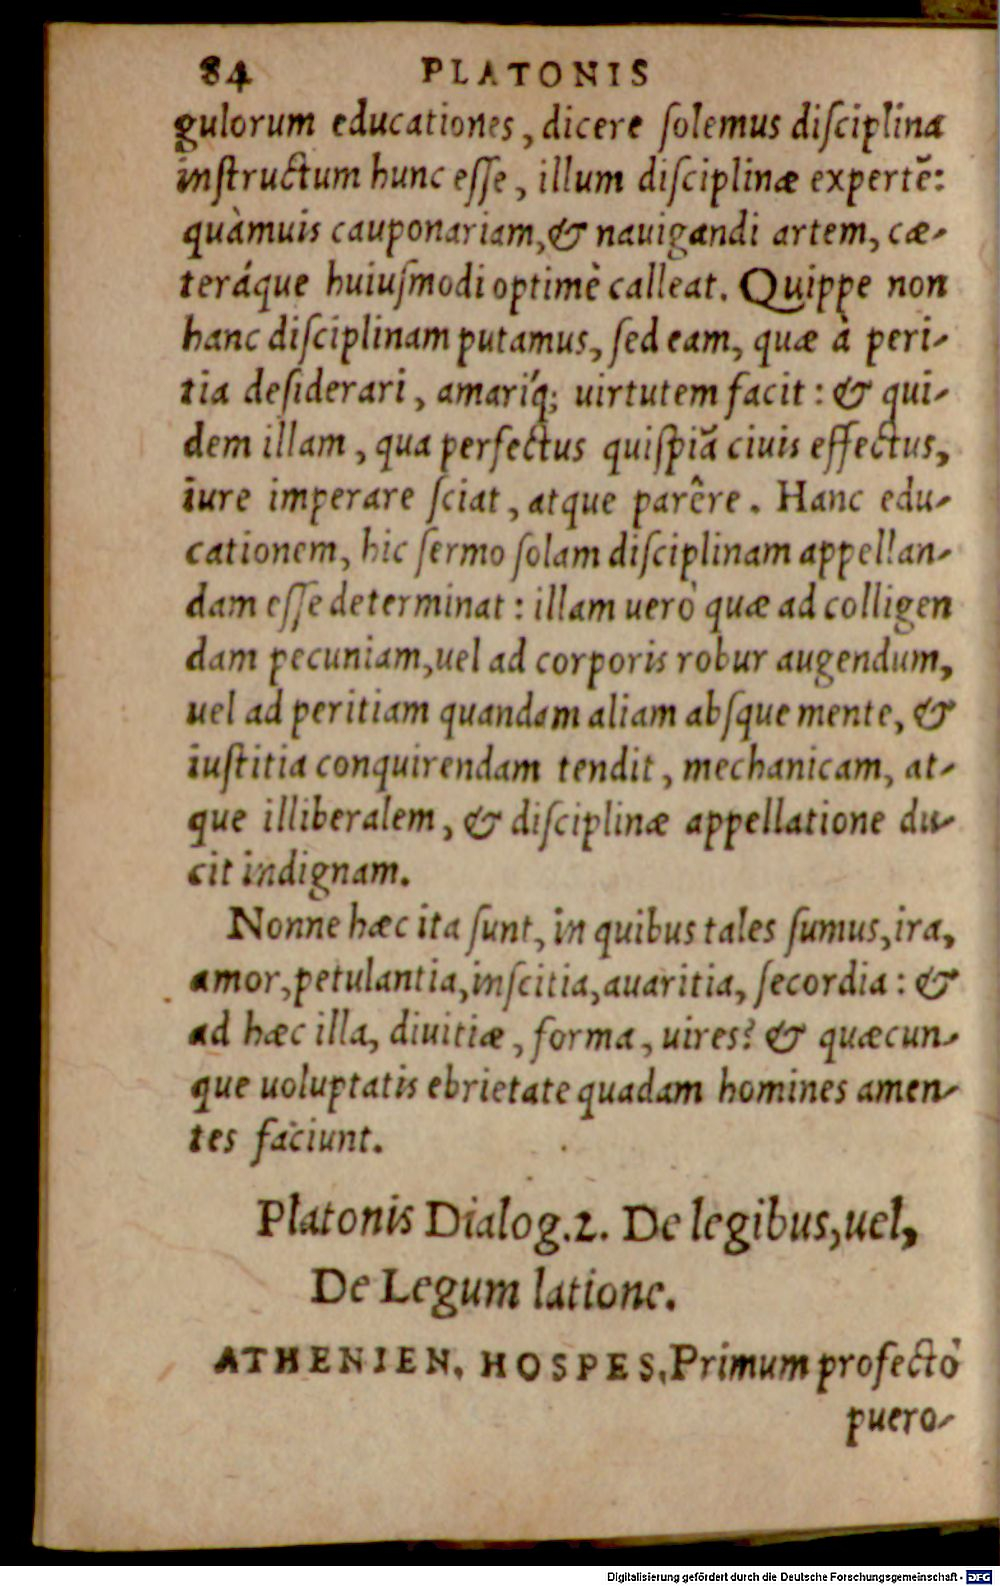 84 PLATONIS
gulorum educationes, dicere ſolemus diſciplina
inſtructum hunc eſſe, illum diſciplinæ expertē:
quàmuis cauponariam, & nauigandi artem, cæ-
teráque huiuſmodi optimè calleat. Quippe non
hanc diſciplinam putamus, ſed eam, quæ à peri-
tia deſiderari, amaríq; uirtutem facit: & qui-
dem illam, qua perfectus quiſpiā ciuis effectus,
iure imperare ſciat, atque parêre. Hanc edu-
cationem, hic ſermo ſolam diſciplinam appellan-
dam eſſe determinat: illam uerò quæ ad colligen
dam pecuniam, uel ad corporis robur augendum,
uel ad peritiam quandam aliam abſque mente, &
iuſtitia conquirendam tendit, mechanicam, at-
que illiberalem, & diſciplinæ appellatione du-
cit indignam.
Nonne hæc ita ſunt, in quibus tales ſumus, ira,
amor, petulantia, inſcitia, auaritia, ſecordia: &
ad hæc illa, diuitiæ, forma, uires? & quæcun-
que uoluptatis ebrietate quadam homines amen-
tes faciunt.
Platonis Dialog.2. De legibus, uel,
De Legum latione.
ATHENIEN. HOSPES. Primum profectò
puero-
Digitalisierung gefördert durch die Deutsche Forschungsgemeinschaft - DFG